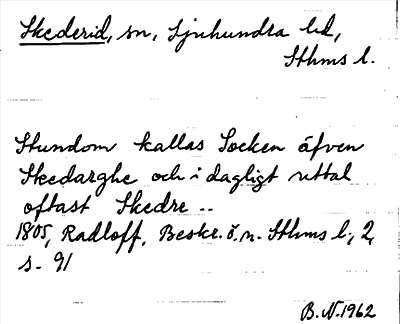 Skederid, sn, Sjuhundra hd,
Sthms l.
Stundom kallas Socken äfven
Skedarghe och i dagligt uttal
oftast Skedre ..
1805, Radloff, Beskr. ö. n. Sthms l., 2,
s. 91
B.N. 1962